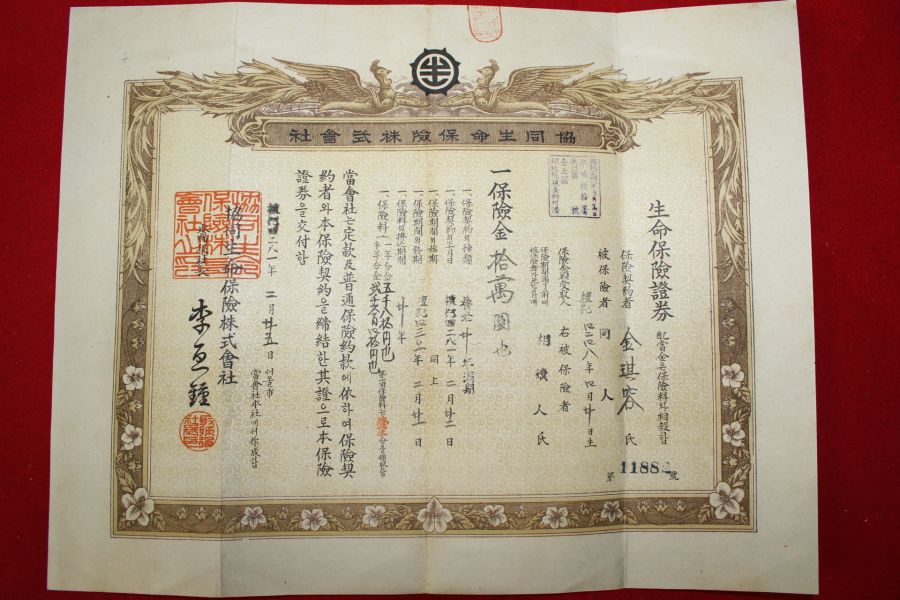 協同生命保險株式會社
生命保險證券
配當金은保險料와相殺함
保險契約者 金琪容 氏
被保險者 同人
檀紀 四二四八年 四月 廿日生
保險金額受取人 右被保險者
相續人 氏
第 1188 號
一保險金 拾萬 圓也
一、保險契約의種類
一、保險契約의年月日 檀紀四二八一年 二月 廿二日
一、保險期間의始期 同上
一、保險期間의終期 檀紀四三〇一年 二月 廿一日
一、保險料의拂込期間 廿年
一、保險料
當會社는定款及普通保險約款에依하여保險契
約者와本保險契約을締結한其證으로本保險
證券을交付함
檀紀四二八一年 二月 廿五日
서울市
當會社本社에서作成함
協同生命保險株式會社
取締役社長